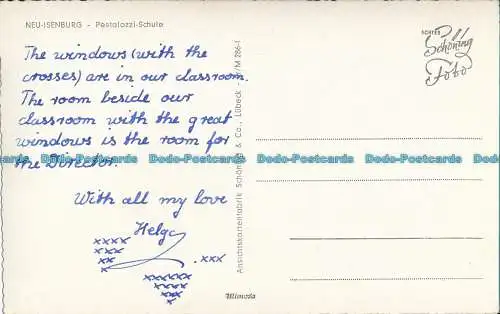 NEU-ISENBURG - Pestalozzi-Schule
The windows (with the
crosses) are in our classroom.
The room beside our
classroom with the great
windows is the room for
the Director.
With all my love
Helga
xxxx
xxx
xx
x
.xxx
xxxxxx
xxxx
xx
Ansichtskartenfabrik Schöning & Co., Lübeck
/M 286-1
Mimosa
ECHTES
Schöning
Foto
Dodo-Postcards Dodo-Postcards Dodo-Postcards Dodo-Postcards Dodo-Postcards